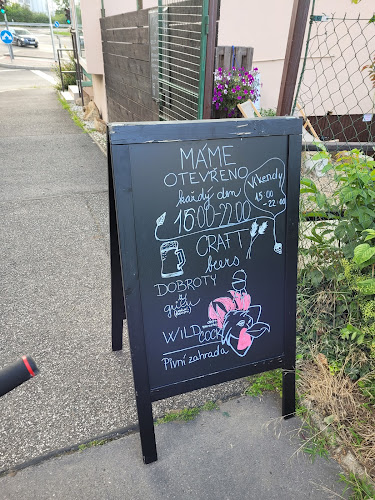 MÁME
OTEVŘENO
každý den
16:00-22:00
Víkendy
15:00
-22:00
CRAFT
beers
DOBROTY
z
grilu
WILD
COCK
Pivní zahrada